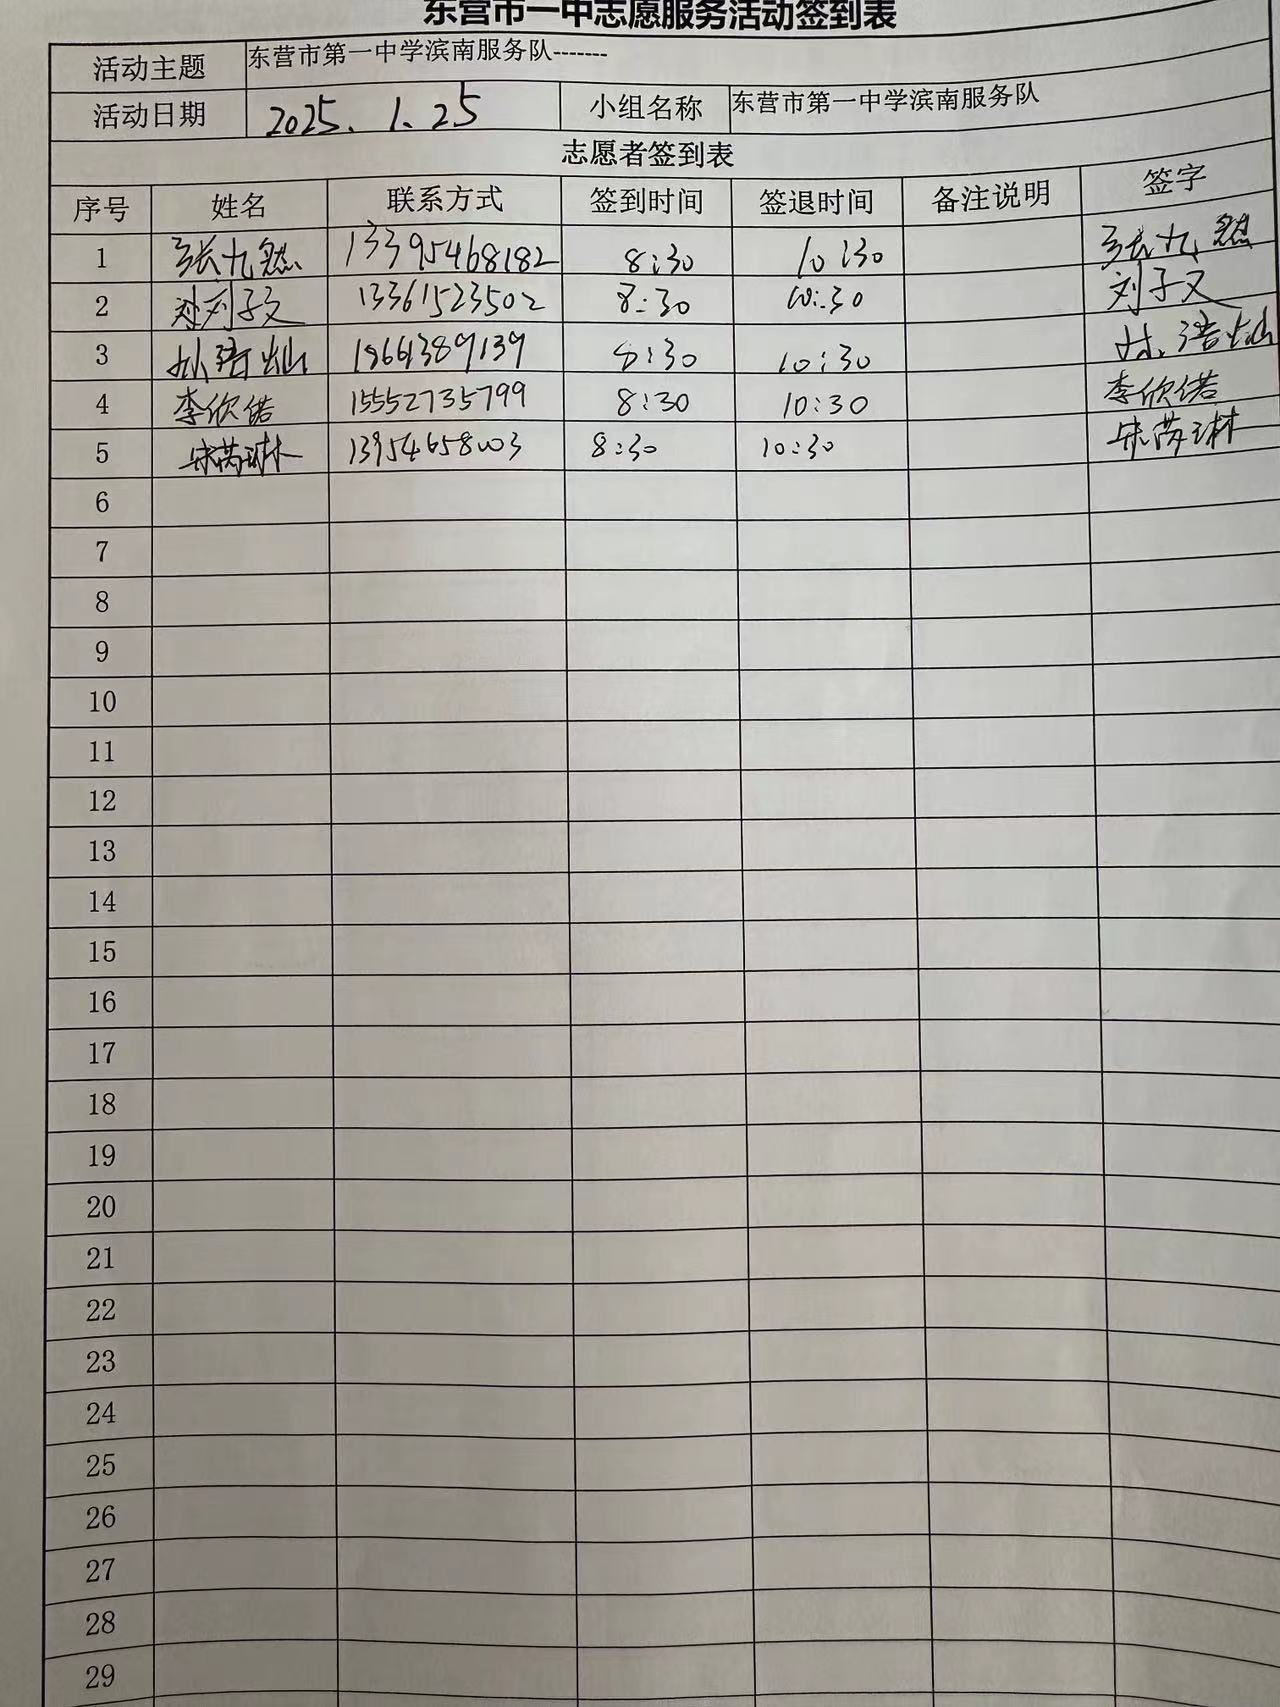 东营市一中志愿服务活动签到表
活动主题 东营市第一中学滨南服务队-------
活动日期 2025.1.25 小组名称 东营市第一中学滨南服务队
志愿者签到表
序号 姓名 联系方式 签到时间 签退时间 备注说明 签字
1 张九然 13395468182 8:30 10:30 张九然
2 刘子文 13361523502 8:30 10:30 刘子文
3 18661389139 8:30 10:30
4 李欣偌 15552735799 8:30 10:30 李欣偌
5 宋芮琳 13954658003 8:30 10:30 宋芮琳
6
7
8
9
10
11
12
13
14
15
16
17
18
19
20
21
22
23
24
25
26
27
28
29